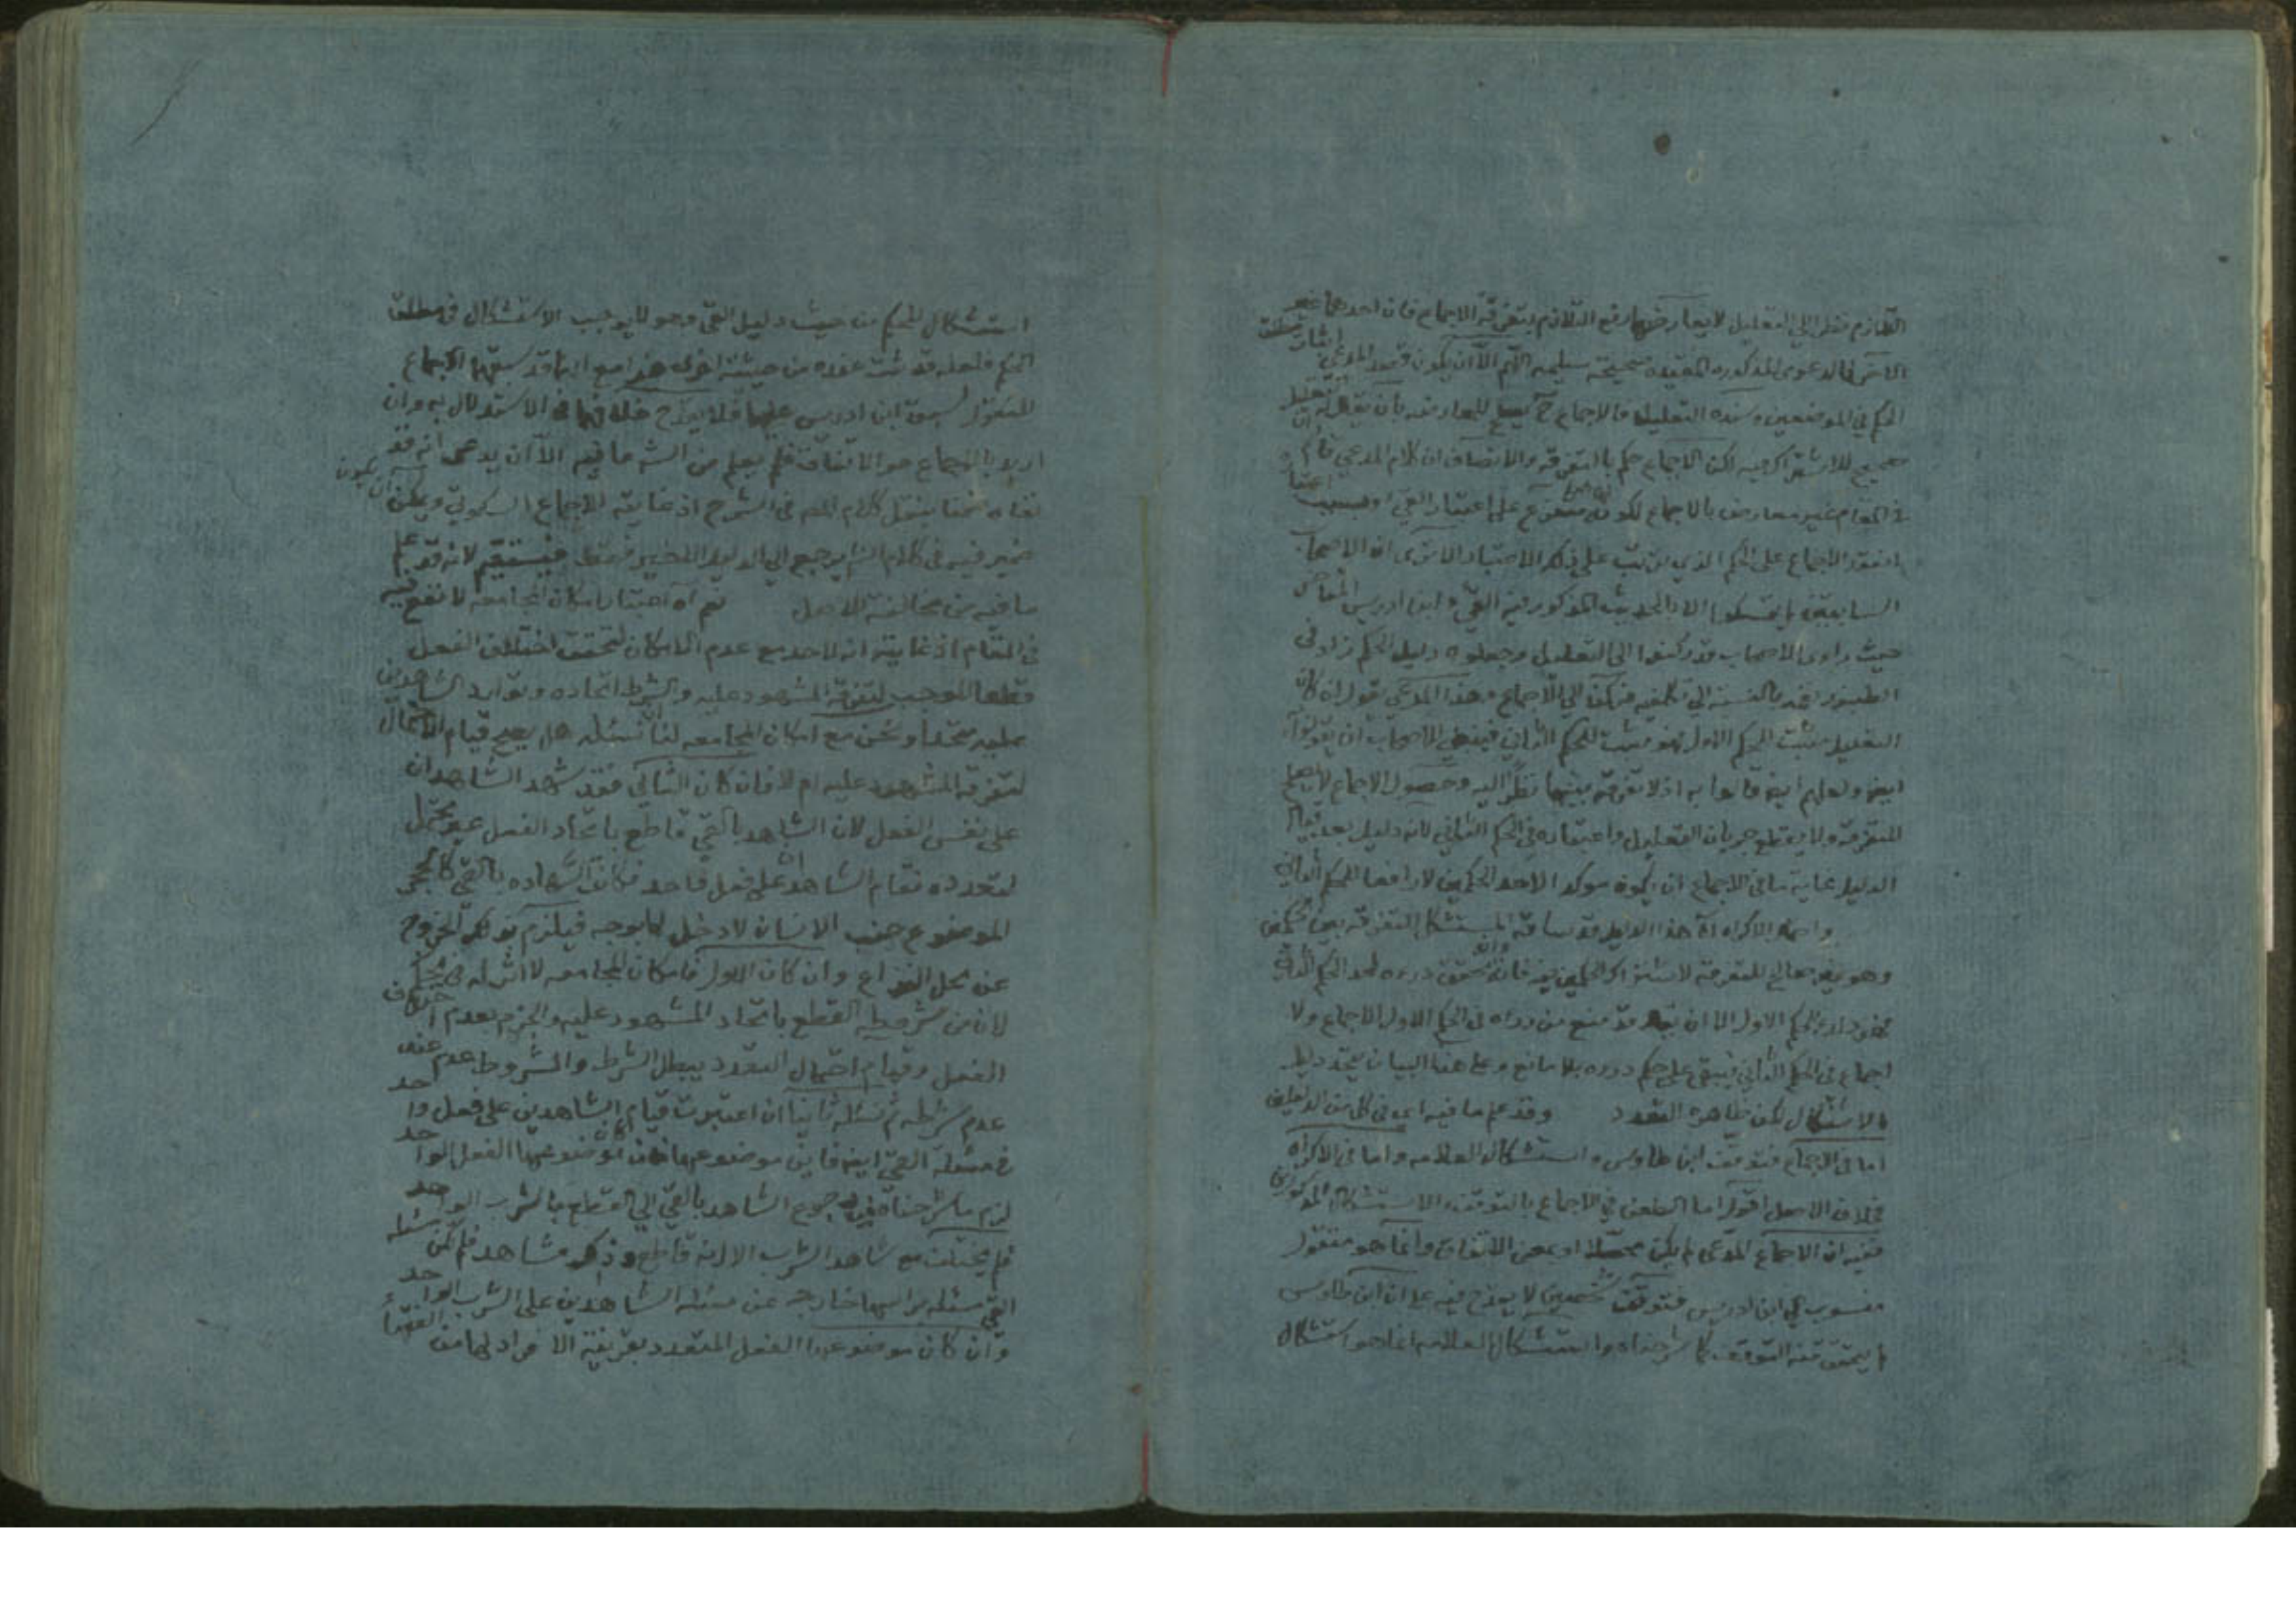 التلازم نظرا الى التعليل لا يعارضها رفع التلازم بتفرقة الاجماع فان احدهما غير
الآخر فالدعوى المذكورة المقيدة صحيحة سليمة اللهم الا ان يكون قصد المدعي اثبات
الحكم في الموضعين وسنده التعليل فالاجماع ح يصلح للمعارضة بان يقال ان تعليل
صحيح للاشتراك فيه لكن الاجماع حكم بالتفرقة والانصاف ان كلام المدعي
في المقام غير معارض بالاجماع لكونه متفرع على اعتبار القي
انعقد الاجماع على الحكم الذي يترتب على ذلك الاعتبار الا ترى ان الاصحاب
السابقين لم يتمسكوا الا بالحديث المذكور فيه القي وابن ادريس
حيث راوى الاصحاب قد ركنوا الى التعليل وجعلوه دليل الحكم زاد في
الاجماع وهذا المدعي يقول ان كان
التعليل مثبت للحكم الاول فهو مثبت للحكم الثاني فينبغي للاصحاب ان يقولوا
ايضا ولعلهم ايضا قالوا به اذ لا تفرقة بينهما نظرا اليه وحصول الاجماع لا يصلح
للتفرقة ولا يقطع جريان التعليل واعتباره في الحكم الثاني لانه دليل بعد قيام
الدليل غاية ما في الاجماع ان يكون موكدا لاحد الحكمين لا رافعا للحكم الثاني
واحتمال الاكراه آه هذا الدليل قد ساقه المستشكل للتفرقة بين الحكمين
وهو غير صالح للتفرقة لاشتراك الحكمين فيه فانه تحقق درءه لحد الحكم الثاني
فهو دارئ للحكم الاول الا ان يقال قد منع من درءه في الحكم الاول الاجماع ولا
اجماع في الحكم الثاني فيبقى على حكم درءه بلا مانع وعلى هذا البيان يتحد دليل
الاشكال لكن ظاهره التعدد وقد علم ما فيه اي في كل من الدليلين
اما في الاجماع فتوقف ابن طاوس واستشكال العلامه واما في الاكراه
فخلاف الاصل اقول اما الطعن في الاجماع بالتوقف والاستشكال المذكورين
ففيه ان الاجماع المدعى لم يكن محصلا او بمعنى الاتفاق وانما هو منقول
منسوب الى ابن ادريس فتوقف شخصين لا يقدح فيه على ان ابن طاوس
لم يتحقق منه التوقف كما شرحناه واستشكال العلامه انما هو استشكال
استشكال للحكم من حيث دليل القي وهو لا يوجب الاستشكال في مطلق
الحكم فلعله قد ثبت عنده من حيثية اخرى هذا مع انهما قد سبقهما الاجماع
المنقول لسبق ابن ادريس عليهما فلا يقدح خلافهما في الاستدلال به وان
اريد بالاجماع هو الاتفاق فلم يعلم من الشه ما فيه الا ان يدعى انه قد
كلام المص في الشرح اذ غايته الاجماع السكوتي ويمكن ان يكون
ضمير فيه في كلام الش يرجع الى الدليل الاخير فقط فيستقيم لانه قد علم
ما فيه من مخالفة للاصل نعم آه اعتبار امكان المجامعه لا نفع فيه
في المقام اذ غايته انه لا حد مع عدم الامكان لتحقق اختلاف الفعل
قطعا الموجب لتفرقة المشهود عليه والشرط اتحاده وتوارد الشاهدين
عليه متحدا ونحن مع امكان المجامعه لنا نسئله هل يصح قيام الاحتمال
لتفرقة المشهود عليه ام لا فان كان الثاني فقد شهد الشاهدان
على نفس الفعل لان الشاهد بالقي قاطع باتحاد الفعل غير محتمل
لتعدده فقام الشاهدان على فعل واحد فكانت الشهاده بالقي كالحجر
الموضوع جنب الانسان لا دخل لها بوجه فيلزم بذلك الخروج
عن محل النزاع وان كان الاول فامكان المجامعه لا اثر له في الحكم
لان من شروطه القطع باتحاد المشهود عليه والجزم بعدم اختلاف
الفعل وقيام احتمال التعدد يبطل الشرط والمشروط عدم عند
عدم شرطه ثم نسئله ثانيا ان اعتبرت قيام الشاهدين على فعل واحد
في مسئلة القي ايضا فاين موضوعها فان كان موضوعها الفعل الواحد
لزم ما شرحناه من رجوع الشاهد بالقي الى القطع بالشرب الواحد
فلم يختلف مع شاهد الشرب الا انه قاطع وذلك مشاهد فلم تكن مسئلة
القي مسئله براسها خارجه عن مسئلة الشاهدين على الشرب الواحد
وان كان موضوعها الفعل المتعدد بقرينة الافراد لها من الفقهاء